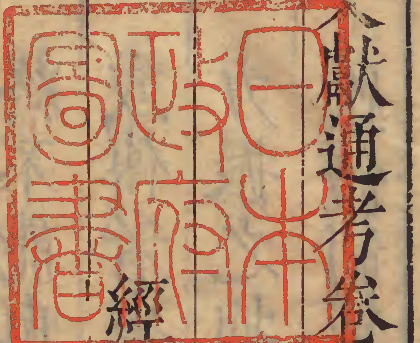 文獻通考卷
經
日本
政府
圖書